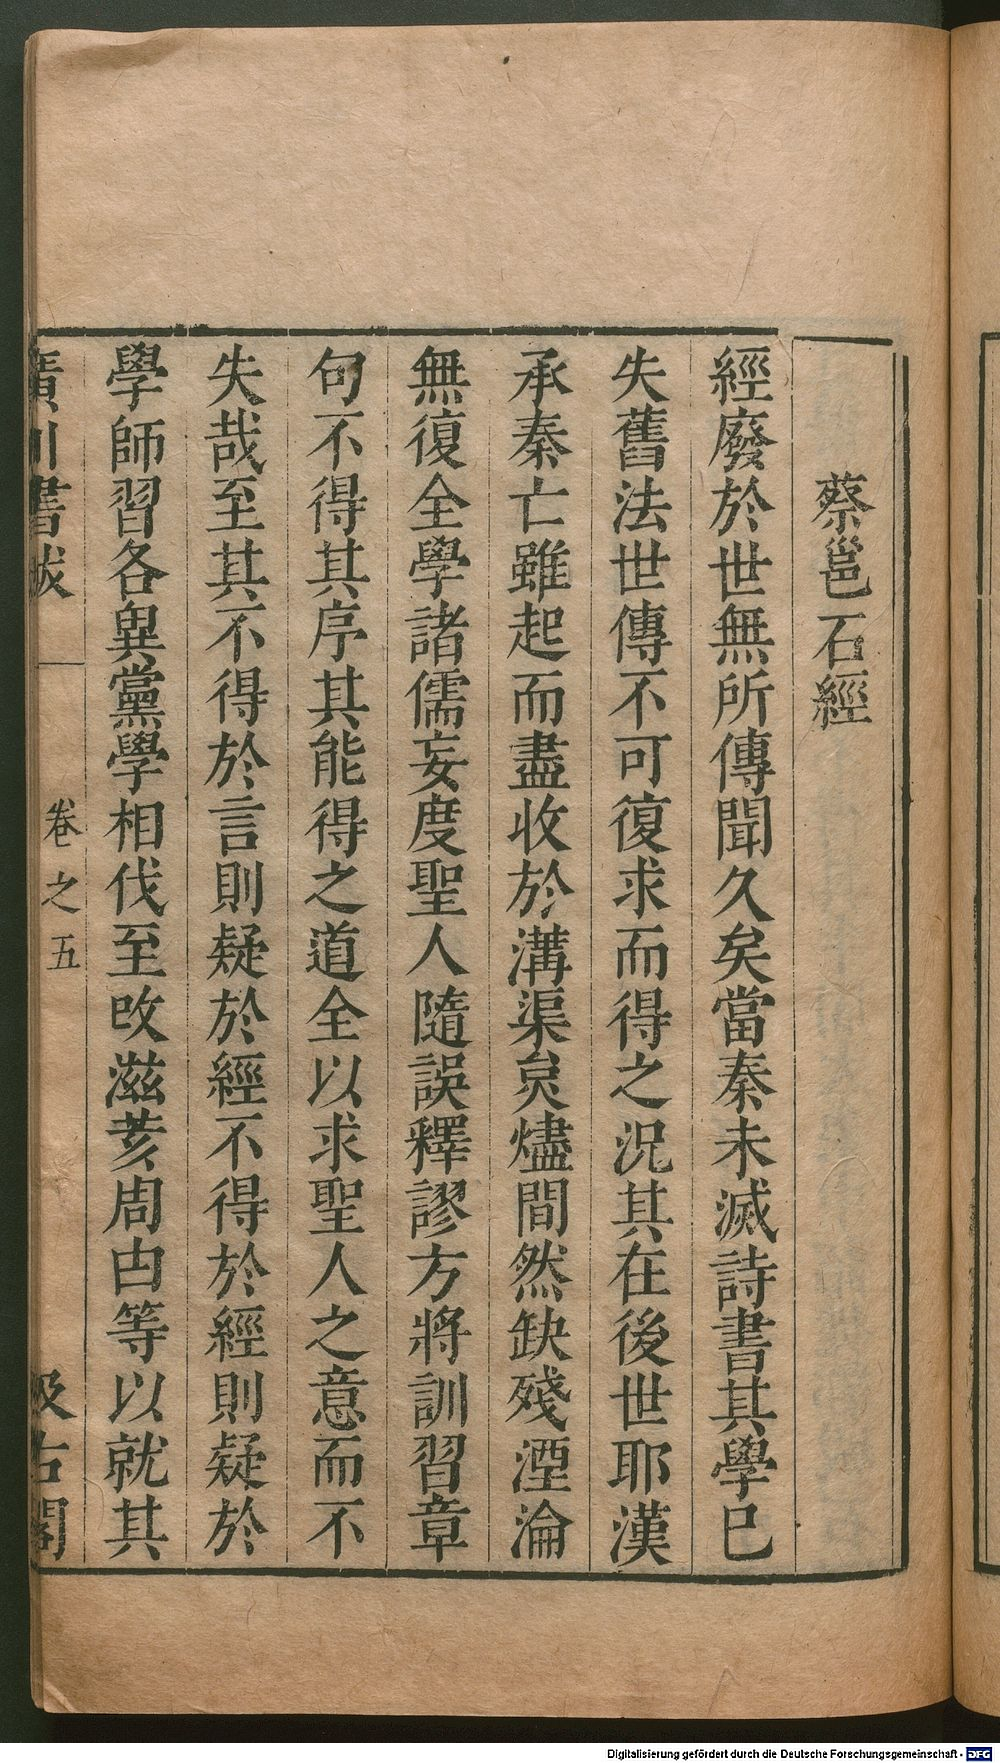 蔡邕石經
經廢於世無所傳聞久矣當秦未滅詩書其學已
失舊法世傳不可復求而得之況其在後世耶漢
承秦亡雖起而盡收於溝渠炱燼間然缺殘湮淪
無復全學諸儒妄度聖人隨誤釋謬方將訓習章
句不得其序其能得之道全以求聖人之意而不
失哉至其不得於言則疑於經不得於經則疑於
學師習各異黨學相伐至改滋荄周田等以就其
廣川書跋
卷之五
汲古閣
Digitalisierung gefördert durch die Deutsche Forschungsgemeinschaft - DFG